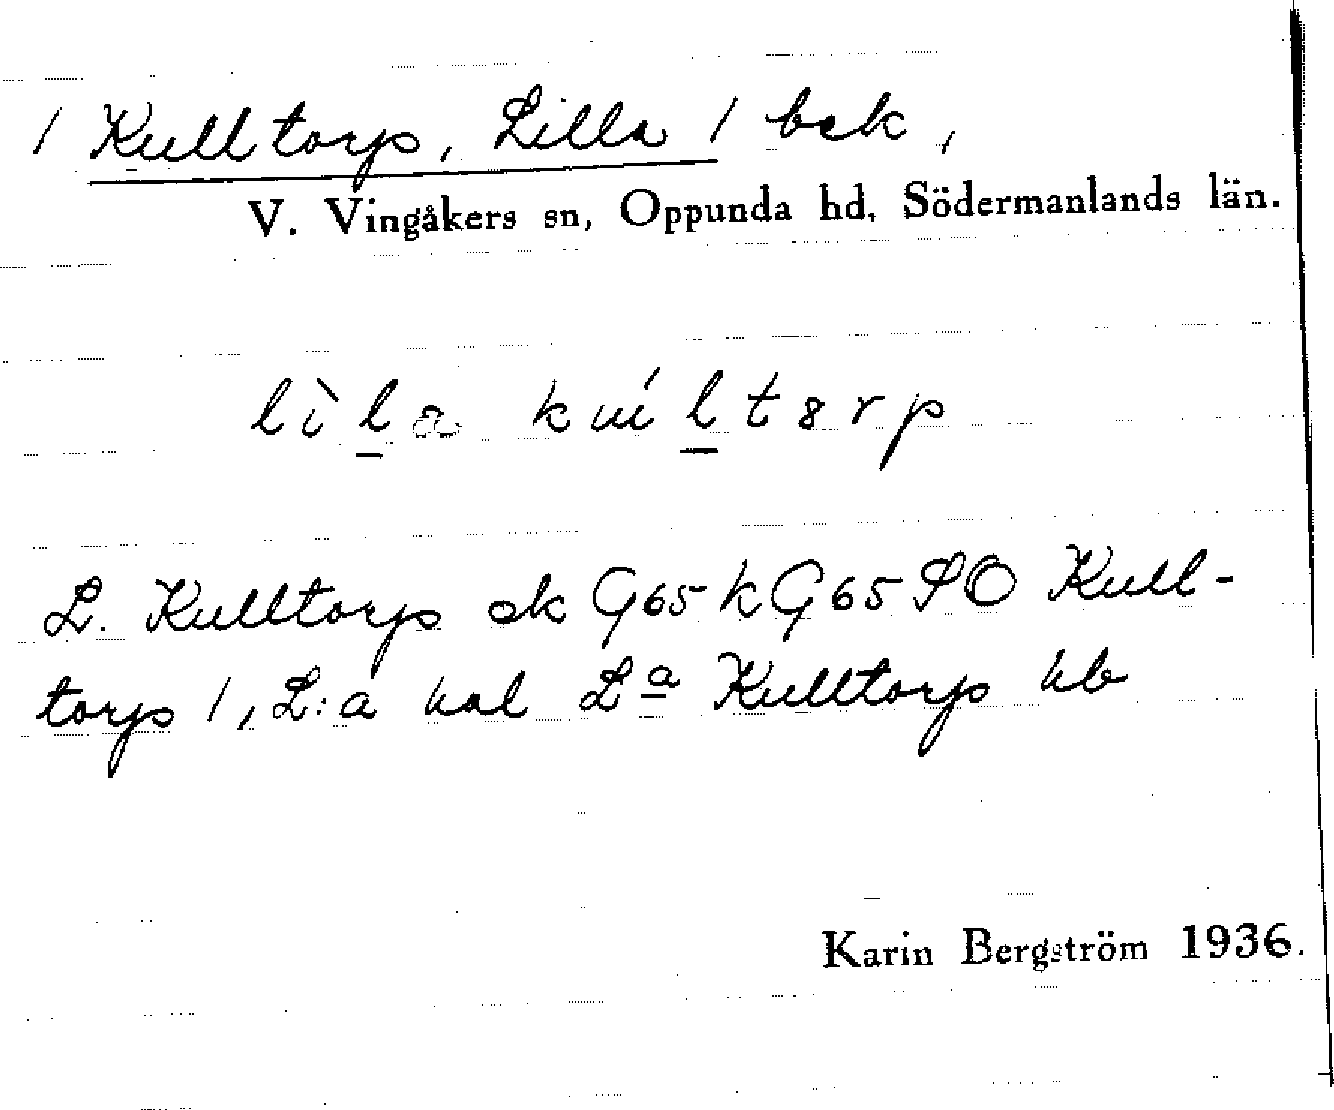 / Kulltorp, Lilla / bsk,
V. Vingåkers sn, Oppunda hd, Södermanlands län.
lìl̲a kuíl̲tərp
L. Kulltorp ek G65 k G65 SO Kull-
torp /, L:a hal Lª Kulltorp hb
Karin Bergström 1936.